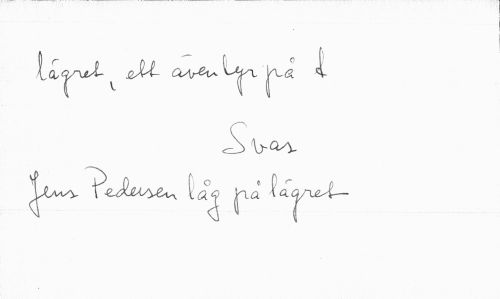 lägret, ett äventyr på t
Svar
Jens Pedersen låg på lägret